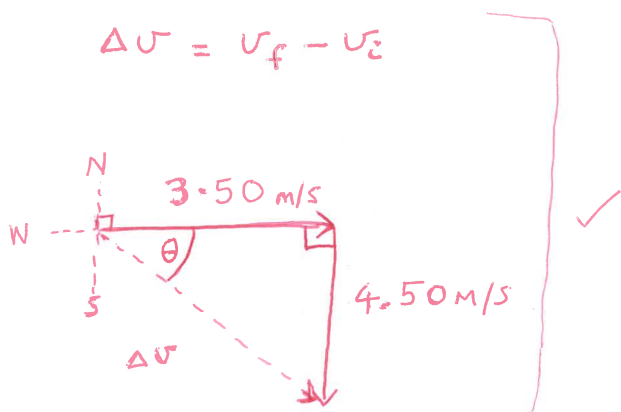 Δv = v_f − v_i
N
3.50 m/s
W
θ
S
4.50 m/s
Δv